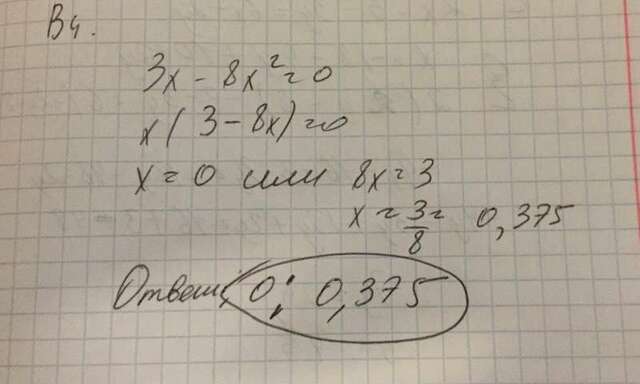 В4.
3x - 8x² = 0
x(3 - 8x) = 0
x = 0 или 8x = 3
x = 3/8 = 0,375
Ответ: 0; 0,375